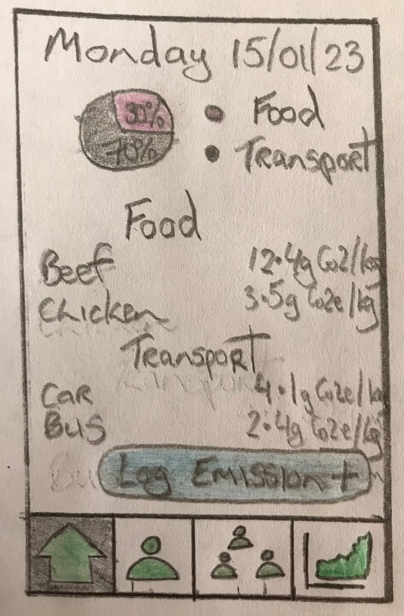 Monday 15/01/23
30%
70%
Food
Transport
Food
Beef 12.4g Co2/kg
Chicken 3.5g Co2e/kg
Transport
Car 4.1g Co2e/kg
Bus 2.4g Co2e/kg
Log Emission +